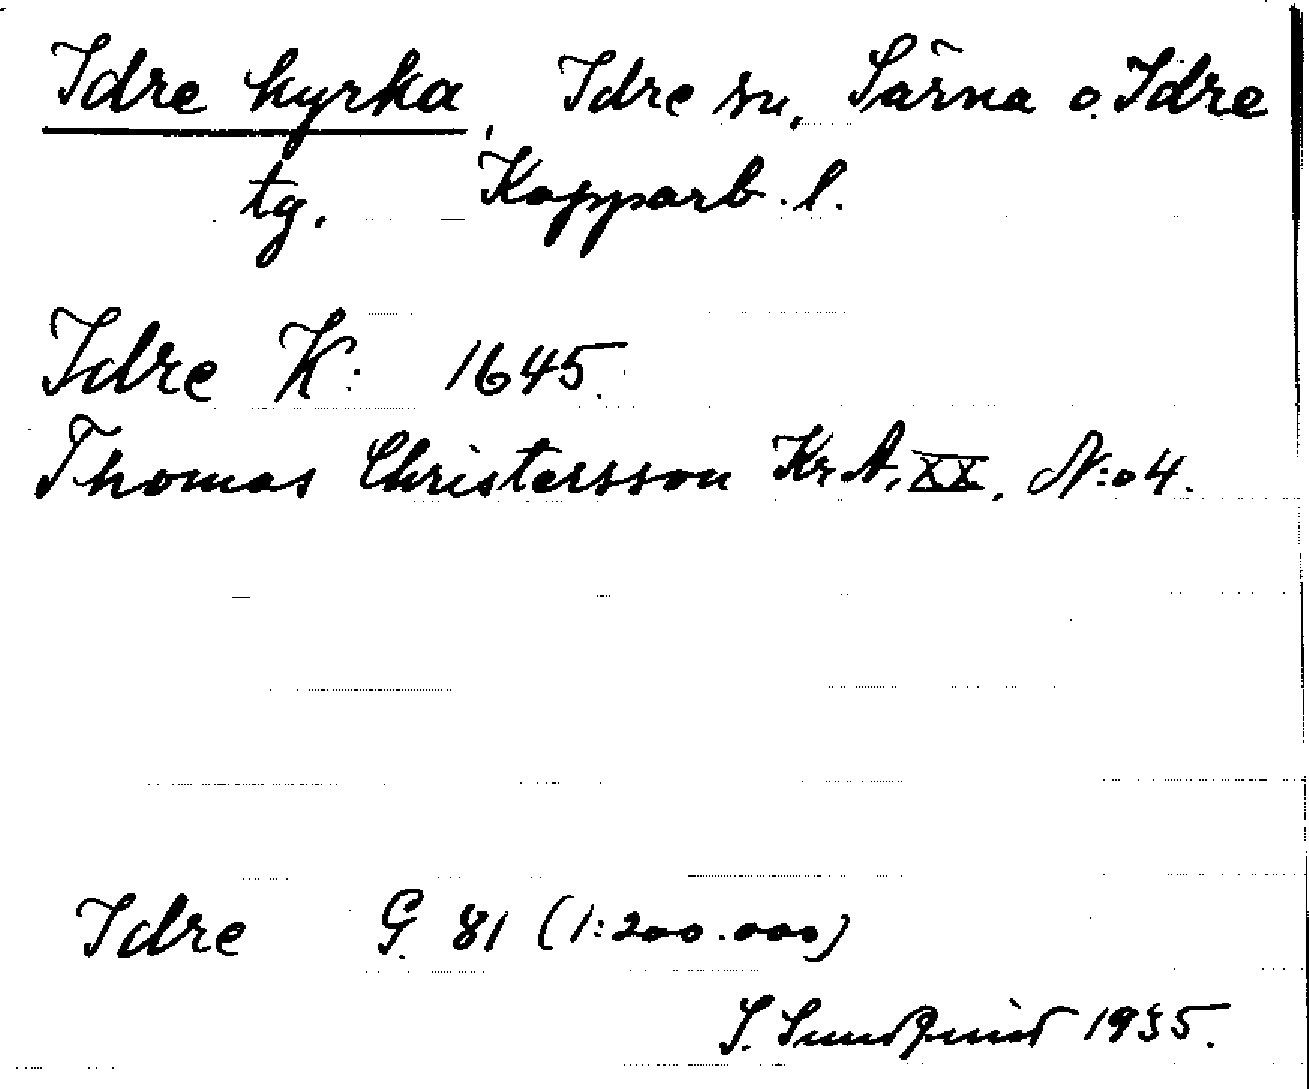 Idre kyrka, Idre sn, Särna o. Idre
tg. Kopparb. l.
Idre K: 1645.
Thomas Christersson Kr. A. XX, N:o 4.
Idre G. 81 (1:200.000)
S. Sundquist 1935.